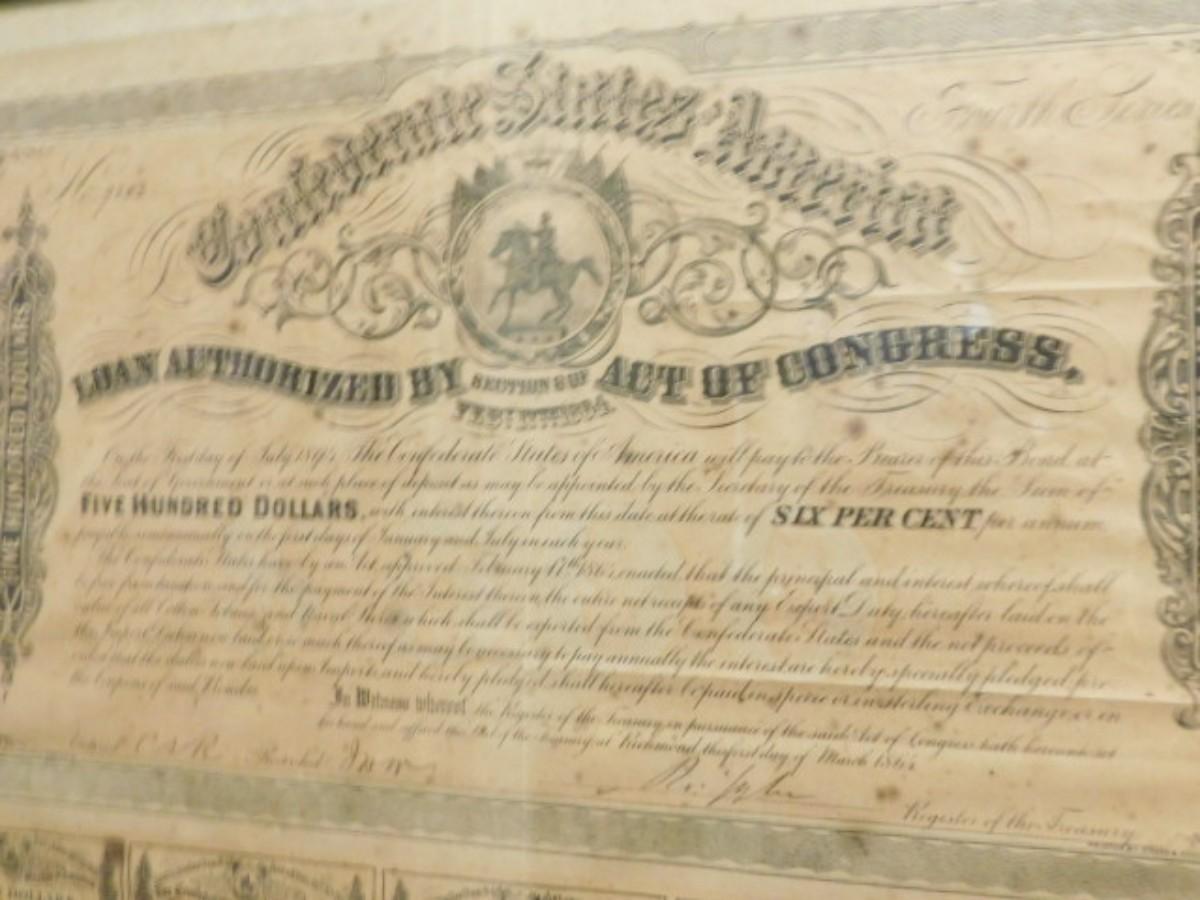 Confederate States America
Fourth Series
No
LOAN AUTHORIZED BY SECTION 6 OF ACT OF CONGRESS,
FEBY 17TH 1864.
On the First day of July The Confederate States of America will pay to the Bearer of this Bond, at
the Seat of Government or at such place of deposit as may be appointed by the Secretary of the Treasury the Sum of
FIVE HUNDRED DOLLARS, with interest thereon from this date at the rate of SIX PER CENT per annum
payable semiannually on the first days of January and July in each year.
The Confederate States have by an Act approved February 17th enacted that the principal and interest whereof shall
be free from taxation and for the payment of the Interest thereon, the entire net receipts of any Export Duty hereafter laid on the
value of all Cotton, Tobacco and Naval Stores which shall be exported from the Confederate States and the net proceeds of
the Import Duties now laid or so much thereof as may be necessary to pay annually the interest are hereby specially pledged: pro
vided that the duties now laid upon Imports and hereby pledged, shall hereafter be paid in specie or in sterling Exchange, or in
the Coupons of said Bonds.
In Witness whereof the Register of the Treasury in pursuance of the said Act of Congress hath hereunto set
his hand and affixed the Seal of the Treasury at Richmond the first day of March
Register of the Treasury
FIVE HUNDRED DOLLARS